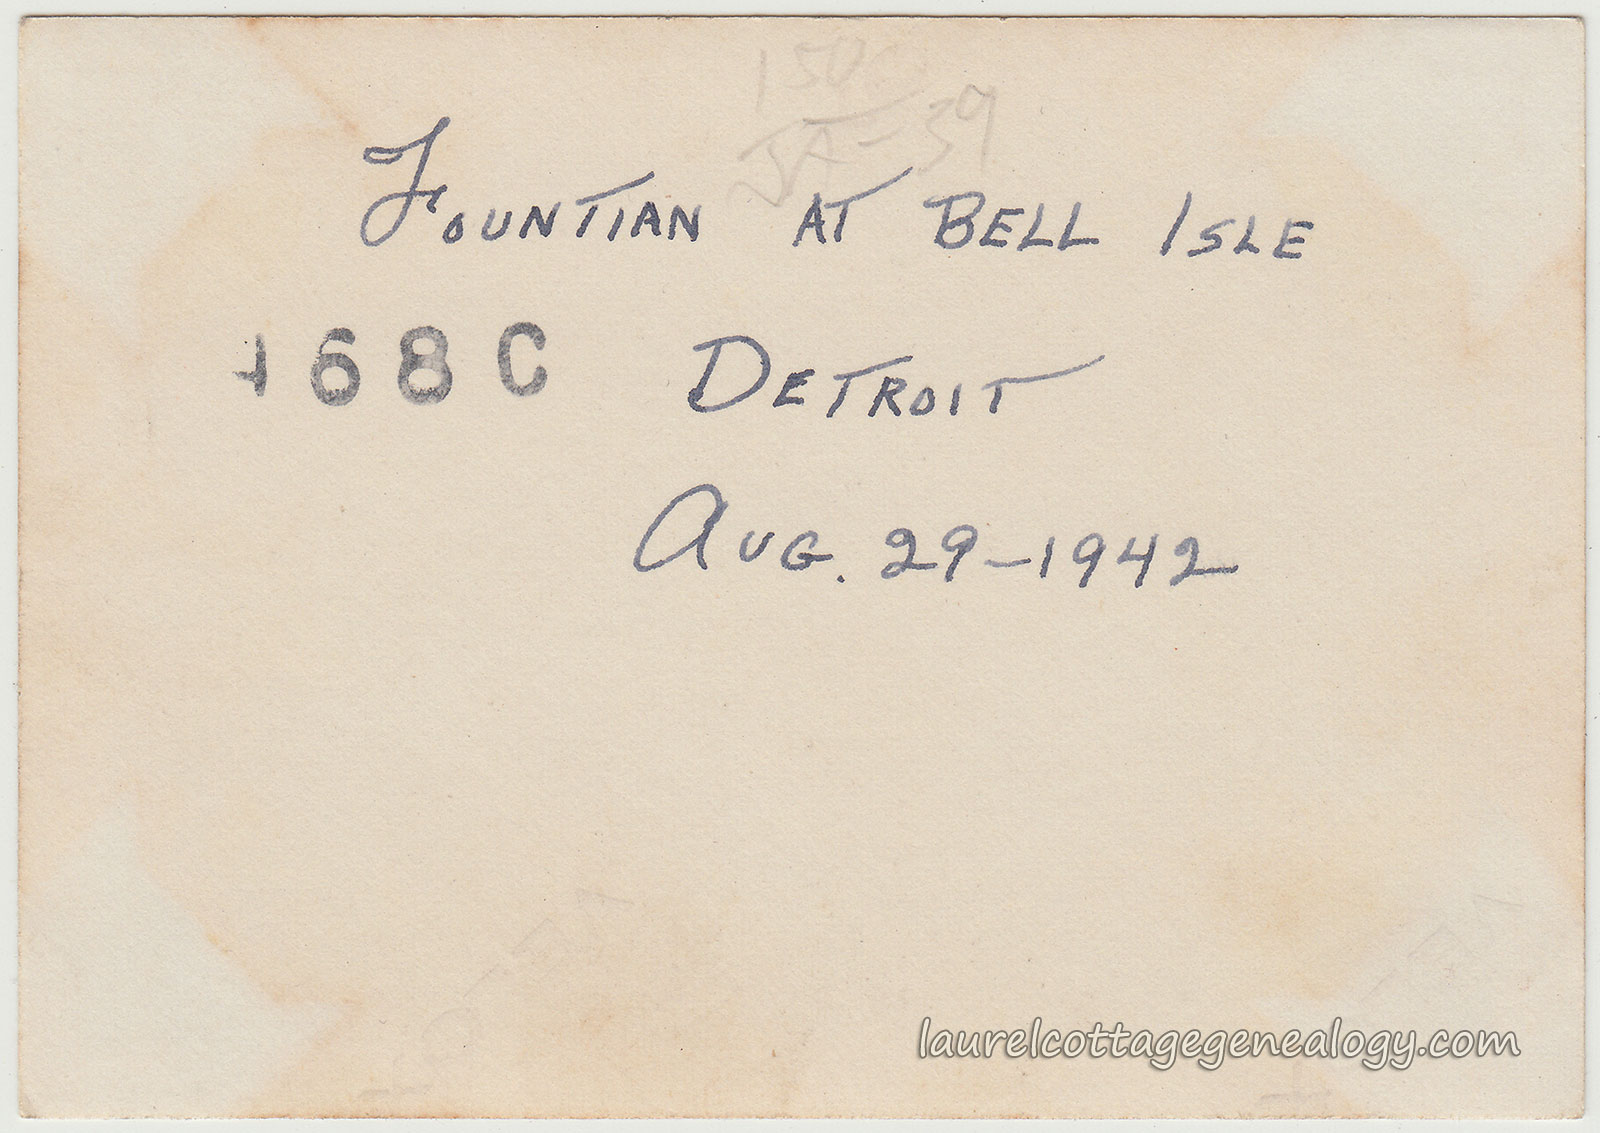 FOUNTIAN AT BELL ISLE
168 C
DETROIT
AUG. 29-1942
laurelcottagegenealogy.com